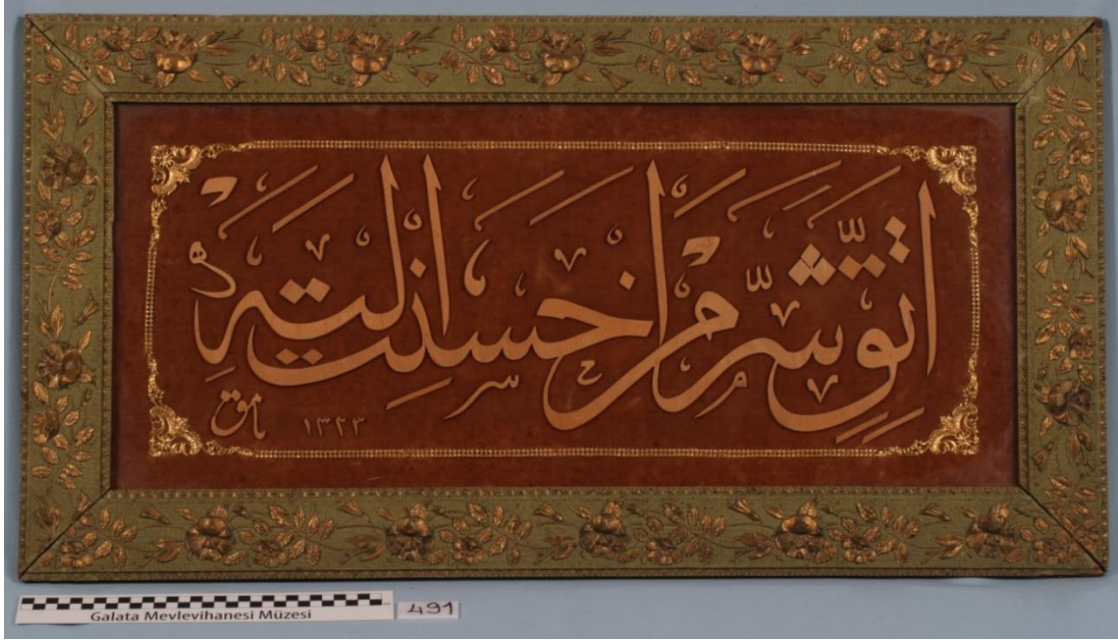 اتق شر من احسنت اليه
١٣٢٣
Galata Mevlevihanesi Müzesi
491